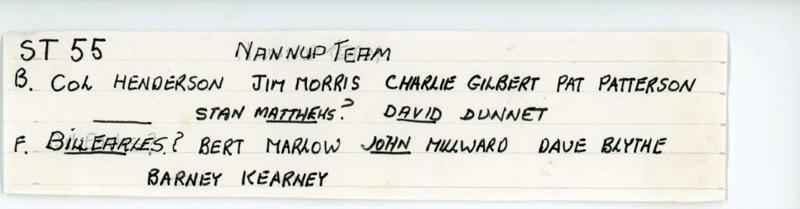 ST 55 NANNUP TEAM
B. COL HENDERSON JIM MORRIS CHARLIE GILBERT PAT PATTERSON
____ STAN MATTHEWS? DAVID DUNNET
F. BILL EARLES.? BERT MARLOW JOHN MILLWARD DAVE BLYTHE
BARNEY KEARNEY